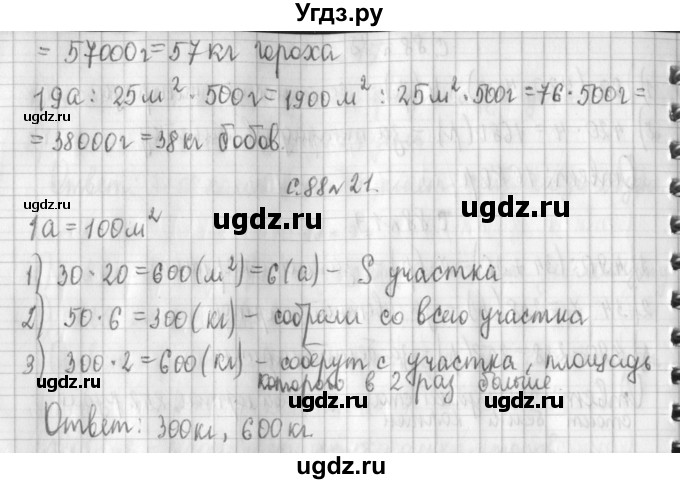 Угдз.ру
= 57000г = 57кг гороха
19а : 25м² · 500г = 1900м² : 25м² · 500г = 76 · 500г =
= 38000г = 38кг бобов.
с.88 №21.
ugdz.ru ugdz.ru
1а = 100м²
1) 30 · 20 = 600 (м²) = 6 (а) – S участка
2) 50 · 6 = 300 (кг) – собрали со всего участка
3) 300 · 2 = 600 (кг) – соберут с участка, площадь
которого в 2 раз больше
ugdz.ru ugdz.ru
Ответ: 300кг, 600кг.
ugdz.ru